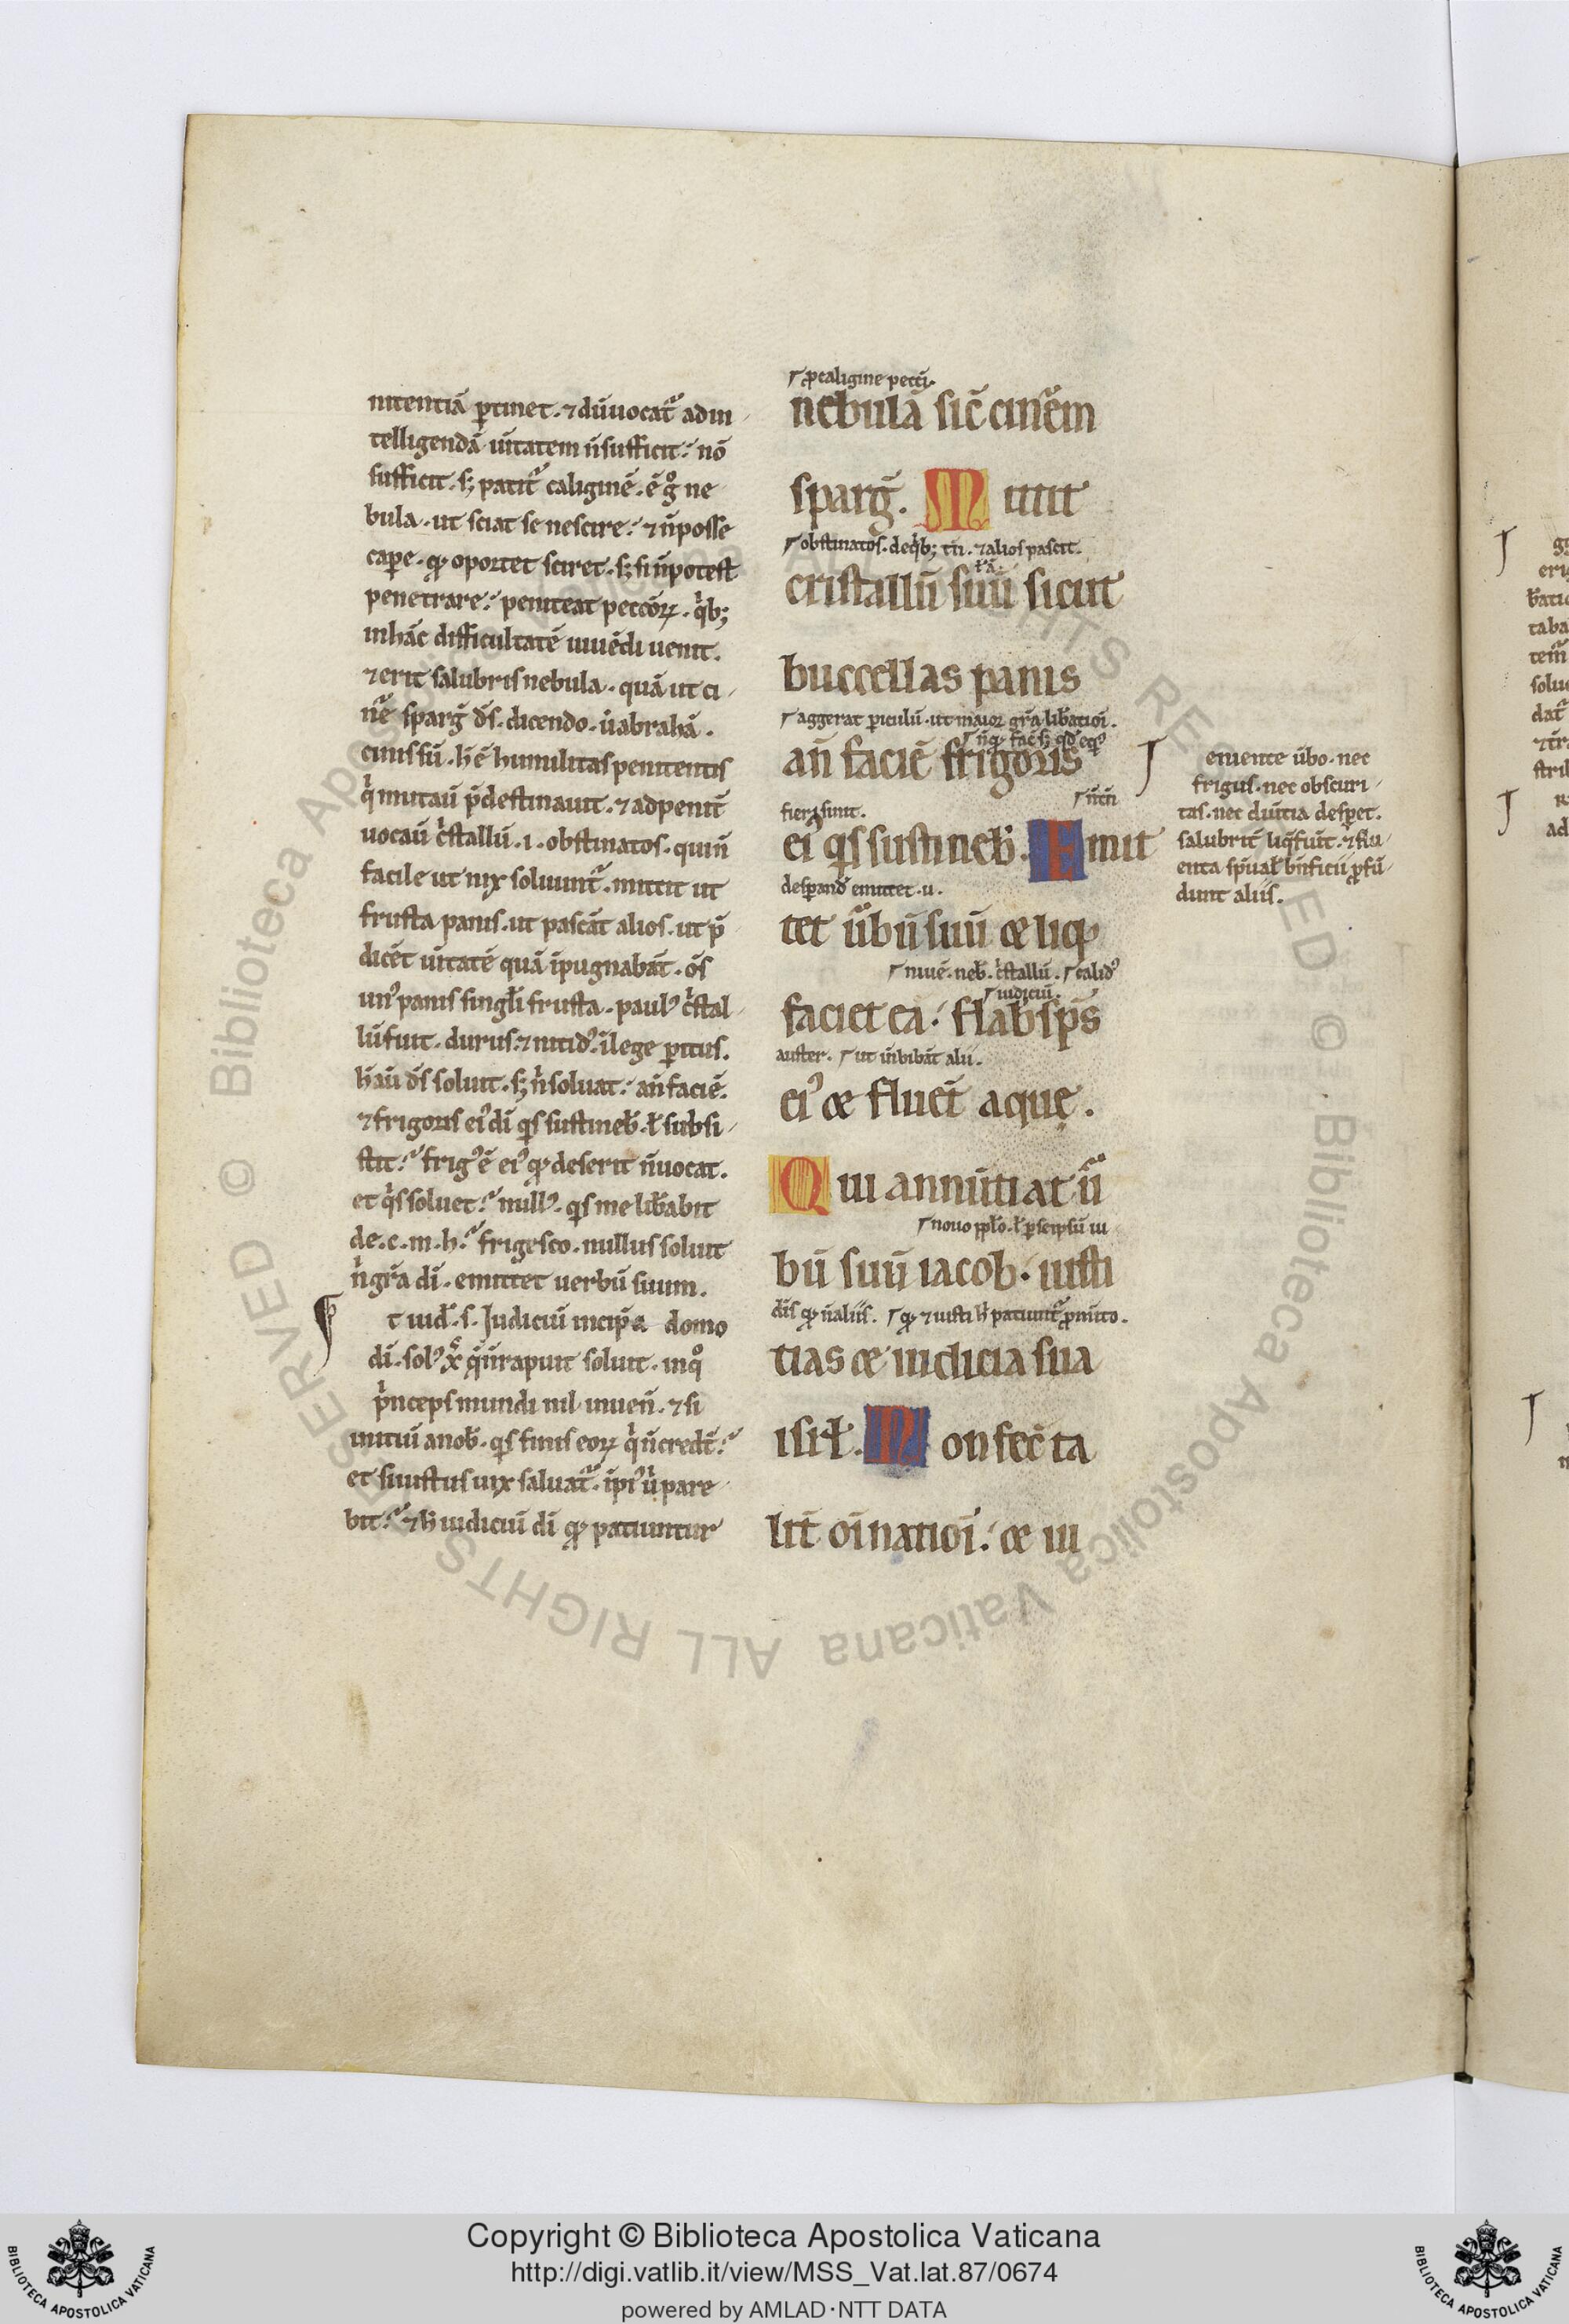 nitentiā ꝑtinet · ⁊ dū uocat᷑ ad in
telligendā uītatem n̄ sufficit · nō
sufficit · sꝫ patit᷑ caliginē · ē gͦ ne
bula · ut sciat se nescire · ⁊ n̄ posse
caꝑe · ꝙ oportet sciret · sꝫ si n̄ potest
penetrare · peniteat pecc̄oꝝ · qͥbꝫ
in hāc difficultatē uiuēdi uenit ·
⁊ erit salubris nebula · quā ut ci
n̄ē sparḡ d̄s · dicendo · ū abrahā ·
cinis sū · h̄ ē humilitas penitentis
qͥ mutaū p̄destinauit · ⁊ ad penit̄
uocaū cͥstallū · ı · obstinatos · qui n̄
facile ut nix soluunt᷑ · mittit ut
frusta panis · ut pascāt alios · ut p̄
dicēt uītatē quā īpugnabāt · ōs
unꝰ panis singłi frusta · paulꝰ cͥstal
lū fuit · durus · ⁊ nitidꝰ · ī lege ꝑitus ·
h̄ aū d̄s soluit · sꝫ n̄ soluat · an̄ faciē ·
⁊ frigoris eiꝰ dī qͥs sustineb̄ · ł subsi
stit · frigꝰ ē eiꝰ ꝙ deserit n̄ uocat ·
et qͥs soluet · nullꝰ · qͥs me lib̄abit
de · c · m · h · frigesco · nullus soluit
nͥ gr̄a dī · emittet uerbū suum ·
t iud̄ · s · Judiciū incip̄ a domo
dī · solꝰ xp̄c q̄ n̄ rapuit soluit · in qͦ
pͥnceps mundi nil inuen̄ · ⁊ si
initiū a nob̄ · qͥs finis eoꝝ qͥ n̄ credt̄ ·
et si iustus uix saluat᷑ · īpiꝰ uͥ pare
bit · ⁊ h̄ iudiciū dī ꝙ patiuntur
ꝓ caligine pecc̄i ·
nebulā sic̄ cin᷑em
sparḡ · Mittit
obstinatos · de qͥbꝫ tn̄ · ⁊ alios pascit ·
cristallū suū sicut
buccellas panis
aggerat ꝑiculū · ut maior gr̄a lib̄atiōī ·
an̄ faciē frigoris
fieri sinit ·
eiꝰ qͥs sustineb̄ · Emit
desperand̄ emittet · u ·
tet u᷑bū suū ⁊ liq̄
niuē · neb̄ · cͥstallū · calidꝰ
iudiciū ·
faciet ea · flab̄ sp̄s
auster · ut ū bibāt alii ·
eiꝰ ⁊ fluēt aquę ·
Qui annūtiat u᷑
nouo pp̄lo · ł ꝑ seipsū iu
bū suū iacob · iusti
d̄īs ꝙ n̄ aliis · ꝙ ⁊ iusti h̄ patiunt᷑ ꝓ mīto ·
tias ⁊ iudicia sua
isr̄ł · Non fec̄ ta
lit̄ oī natioī · ⁊ iu
eniente u᷑bo · nec
frigus · nec obscuri
tas · nec duritia desperet ·
salubrit̄ liq̄fiūt · ⁊ flu
enta sp̄uał bn̄ficii ꝓfū
dunt aliis ·
Copyright © Biblioteca Apostolica Vaticana
http://digi.vatlib.it/view/MSS_Vat.lat.87/0674
powered by AMLAD·NTT DATA